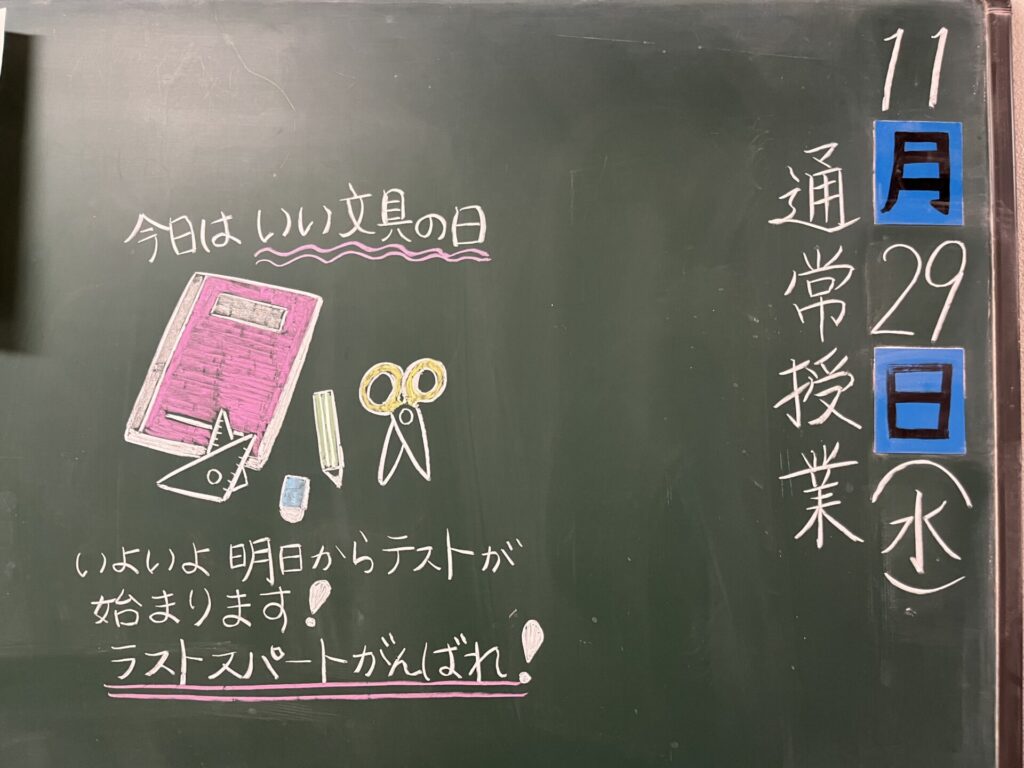 11月29日(水)
通常授業
今日はいい文具の日
いよいよ明日からテストが
始まります!
ラストスパートがんばれ!